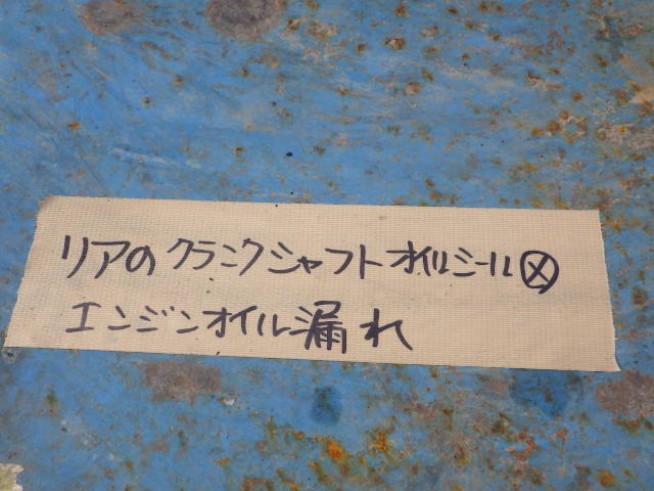 リアのクランクシャフトオイルシール ⓧ
エンジンオイル漏れ